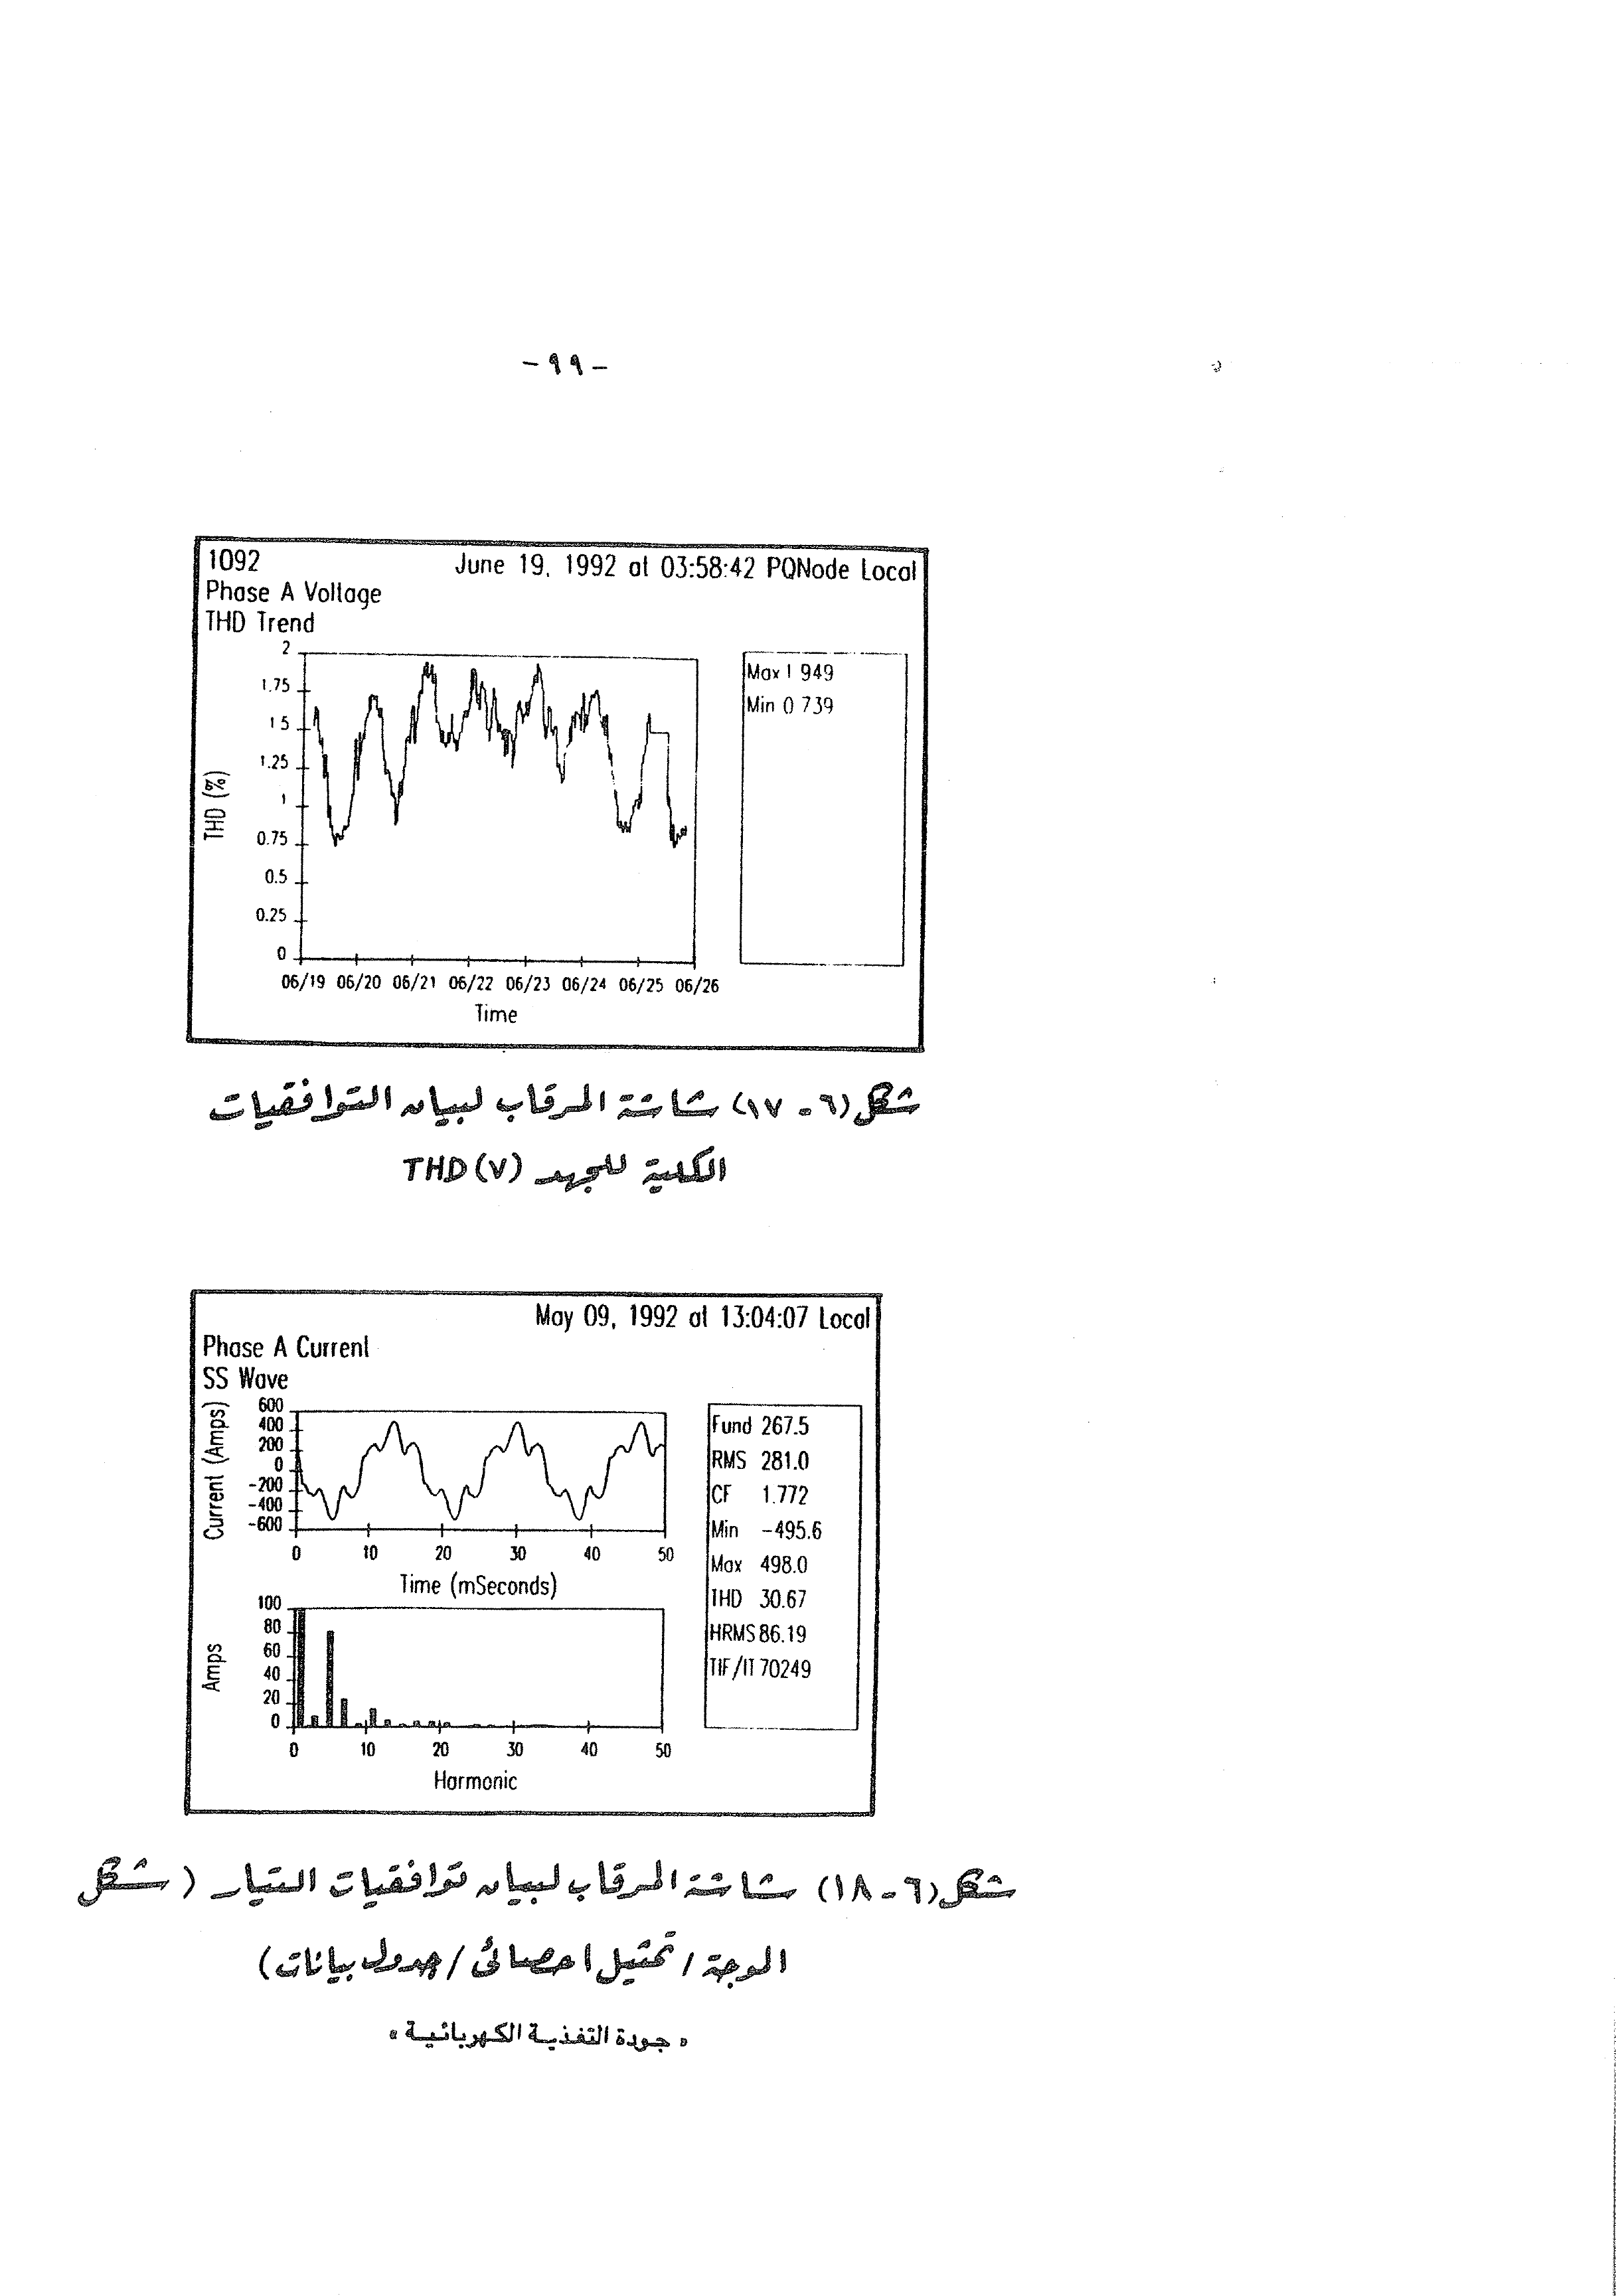 -٩٩-
1092
June 19, 1992 at 03:58:42 PQNode Local
Phase A Voltage
THD Trend
Max 1 949
Min 0 739
THD (%)
2
1.75
1 5
1.25
1
0.75
0.5
0.25
0
06/19 06/20 06/21 06/22 06/23 06/24 06/25 06/26
Time
شكل (٦ - ١٧) شاشة المرقاب لبيان التوافقيات
الكلية للجهد THD (V)
May 09, 1992 at 13:04:07 Local
Phase A Current
SS Wave
Current (Amps)
600
400
200
0
-200
-400
-600
0 10 20 30 40 50
Time (mSeconds)
Fund 267.5
RMS 281.0
CF 1.772
Min -495.6
Max 498.0
THD 30.67
HRMS 86.19
TIF/IT 70249
Amps
100
80
60
40
20
0
0 10 20 30 40 50
Harmonic
شكل (٦ - ١٨) شاشة المرقاب لبيان توافقيات التيار ( شكل
الموجة / تمثيل احصائى / جدول بيانات)
" جودة التغذية الكهربائية "